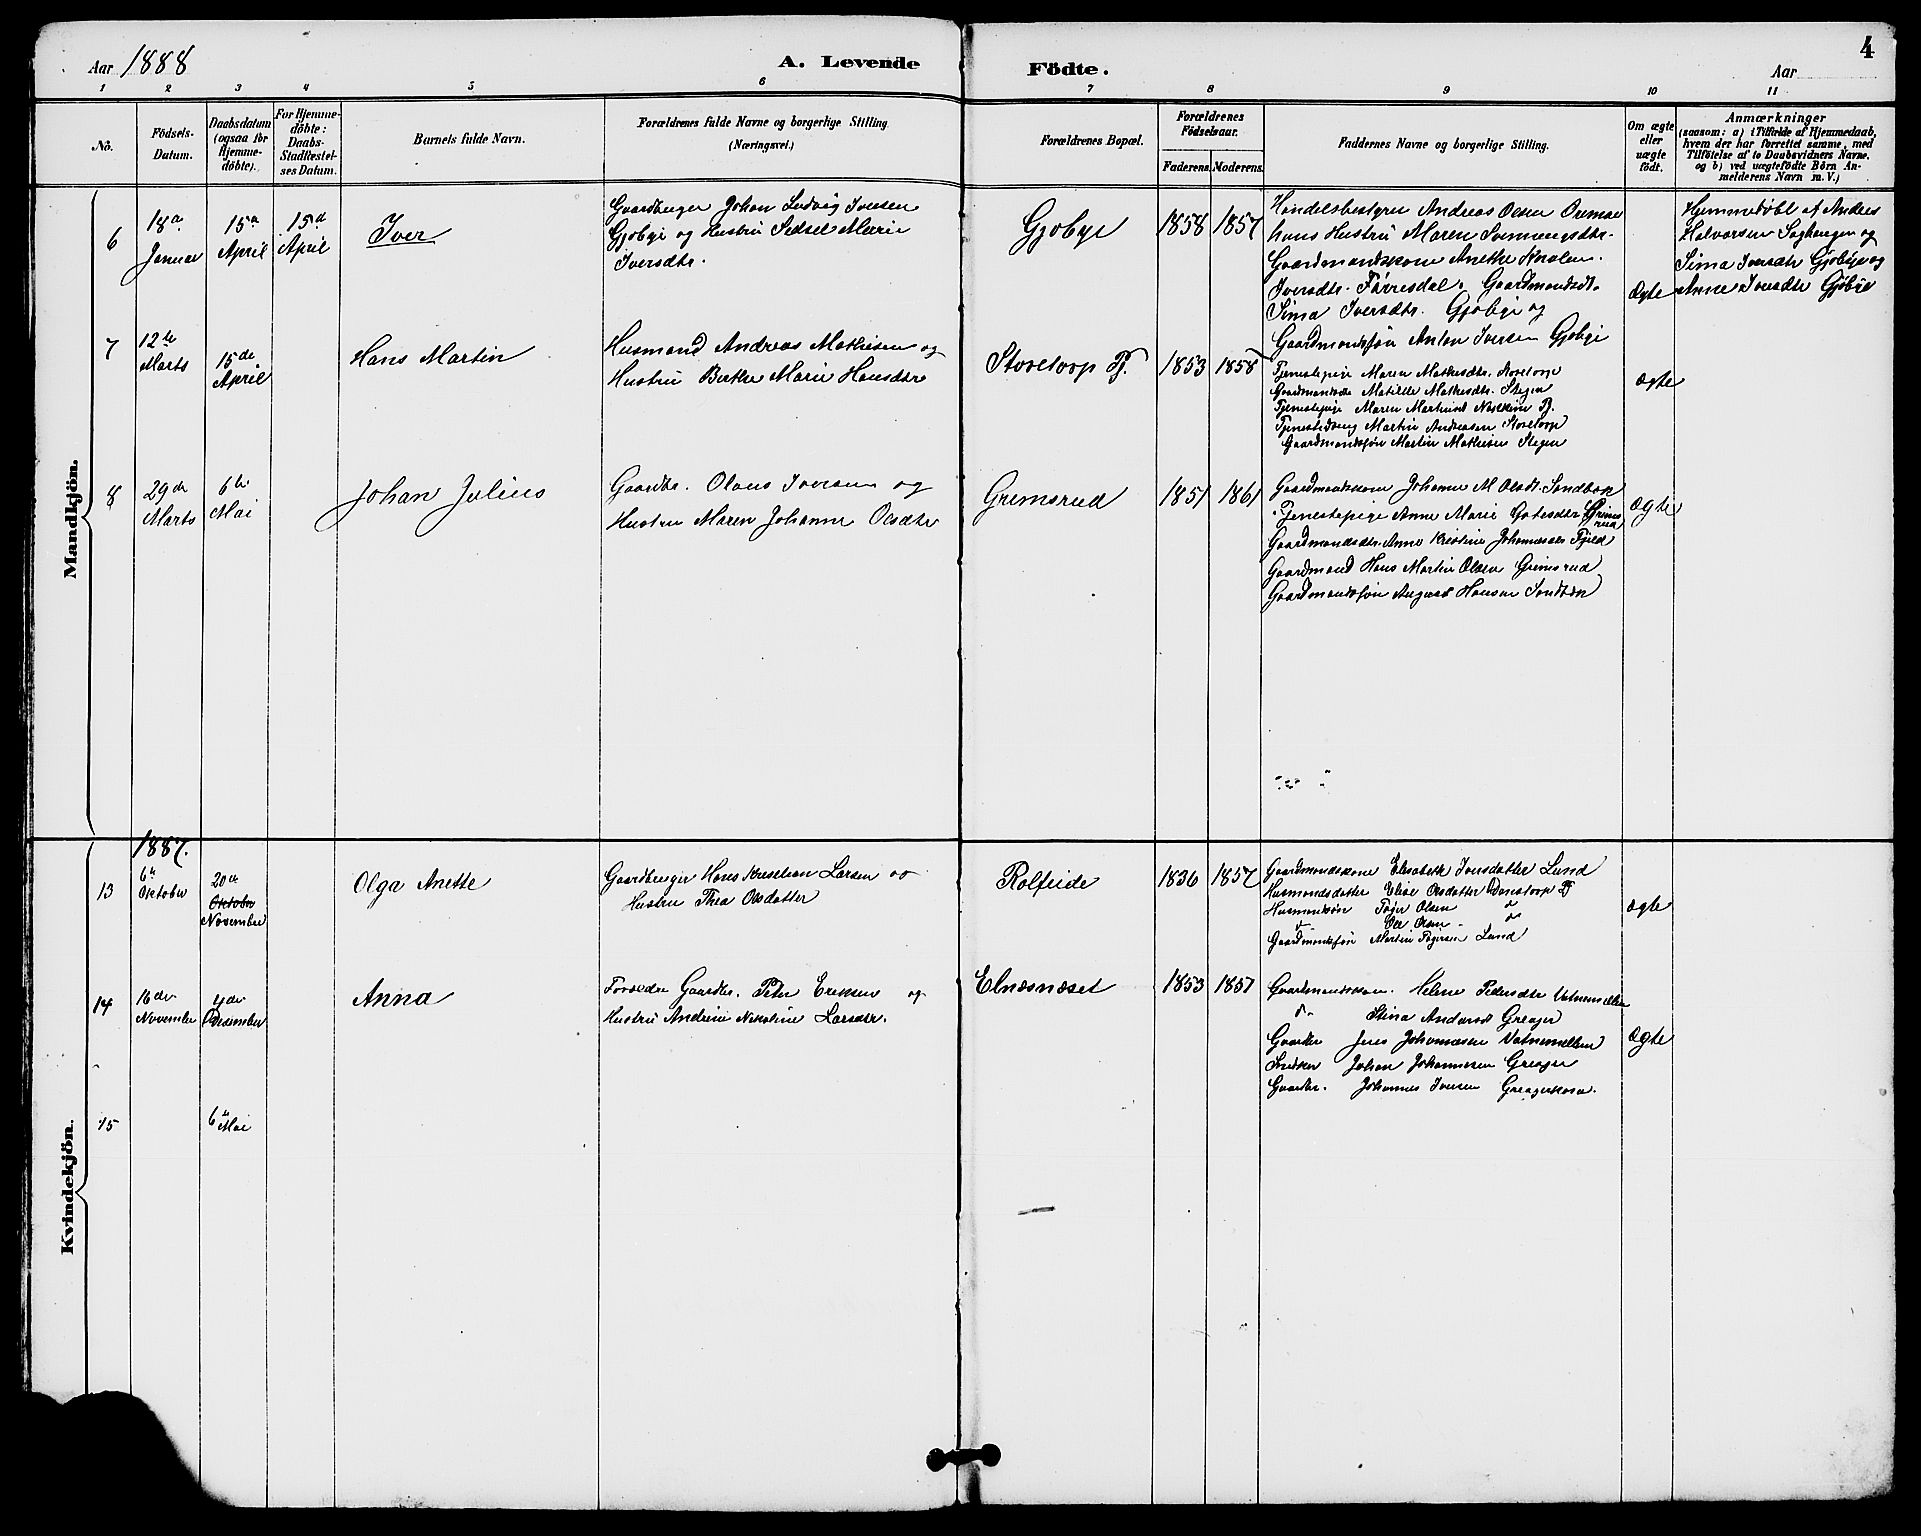 Aar 1888
A. Levende
Födte.
Aar
4
1 2 3 4 5 6 7 8 9 10 11
No.
Födsels-
Datum.
Daabsdatum
(ogsaa for
Hjemme-
döbte).
For Hjemme-
döbte:
Daabs-
Stadfæstel-
ses Datum.
Barnets fulde Navn.
Forældrenes fulde Navne og borgerlige Stilling.
(Næringsvei.)
Forældrenes Bopæl.
Forældrenes
Födselsaar.
Faderens. Moderens.
Faddernes Navne og borgerlige Stilling.
Om ægte
eller
uægte
födt.
Anmærkninger
(saasom: a) i Tilfælde af Hjemmedaab,
hvem der har forrettet samme, med
Tilföielse af to Daabsvidners Navne.
og b) ved uægtefödte Börn An-
melderens Navn m. V.)
Mandkjön.
6
18de
Januar
15de
April
15de
April
Iver
Gaardbruger Johan Ludvig Iversen
Gjøbye og Hustru Sidsel Marie
Iversdtr.
Gjøbye
1858 1857
Handelsbestyrer Andreas Olsen
hans Hustru Maren Svenningsdtr.
Gaardmandskone Anette
Iversdtr. Gaardmandsdt.
Sima Iversdtr. Gjøbye og
Gaardmandssøn Anton Iversen Gjøbye
Ægte
Hjemmedøbt af Anders
Halvorsen og
Sima Iversdtr Gjøbye og
Anne Iversdtr Gjøbye
7
12te
Marts
15de
April
Hans Martin
Husmand Andreas Mathisen og
Hustru Berthe Marie Hansdtr
Storetorp Pl.
1853 1858
Tjenestepige Maren Mathisdtr. Storetorp
Matilde Mathisdtr. Stegen
Tjenestepige Maren
Tjenestedreng Martin Andreasen Storetorp
Gaardmandssøn Martin Mathisen Stegen
Ægte
8
29de
Marts
6te
Mai
Johan Julius
Gaardbr. Olaus Iversen og
Hustru Maren Johanne Olsdtr
Grimsrud
1851 1861
Gaardmandskone Johanne M. Olsdt. Sandbæk
Tjenestepige Anne Marie Grims
rud
Gaardmandsdtr. Anne Kristine
Gaardmand Hans Martin Olsen Grimsrud
Gaardmandssøn Hansen Sandbæk
Ægte
Kvindekjön.
1887.
13
6te
Oktober
20de
Oktober
November
Olga Anette
Gaardbruger Hans Kristian Larsen og
Hustru Thea Olsdatter
Rolfeide
1836 1857
Gaardmandskone Elisabeth Lund
Husmandsdatter Elise Olsdatter Pl
Husmandssøn Olsen do
do Ole Olsen do
Gaardmandssøn Martin Lund
Ægte
14
16de
November
4de
December
Anna
Forældre Gaardbr. Peter Eriksen og
Hustru Andrine Nikoline Larsdtr.
Elnæsnæset
1853 1857
Gaardmandskone Helene Pedersdtr
do Stina Andersd Greager
Gaardbr Jens Johannesen
Snedker Johan Johannesen Greager
Gaardbr. Johannes Iversen
Ægte
15
6te Mai